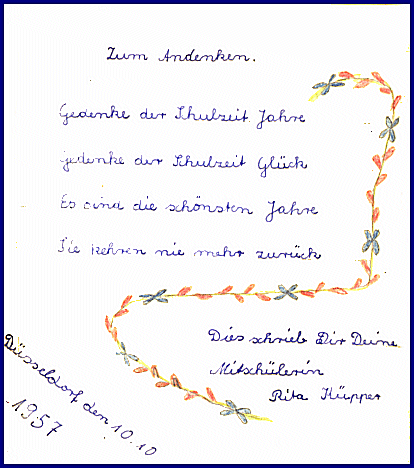 Zum Andenken.
Gedenke der Schulzeit Jahre
gedenke der Schulzeit Glück
Es sind die schönsten Jahre
Sie kehren nie mehr zurück
Dies schrieb Dir Deine
Mitschülerin
Rita Küpper
Düsseldorf den 10.10
1957